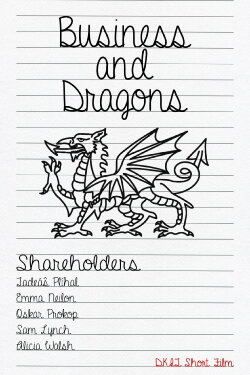 Business
and
Dragons
Shareholders
Tadeáš Plíhal
Emma Neilon
Oskar Prokop
Sam Lynch
Alicia Walsh
DKIT Short Film